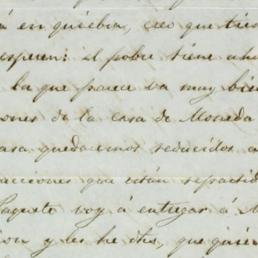 á en quiebra, creo que
esperen: el pobre tiene
la que parece va muy bien
ones de la casa de Moneda
asa quedaremos reducidos a
acciones que están
Paquete voy á entregar á
ion y les he dho, que